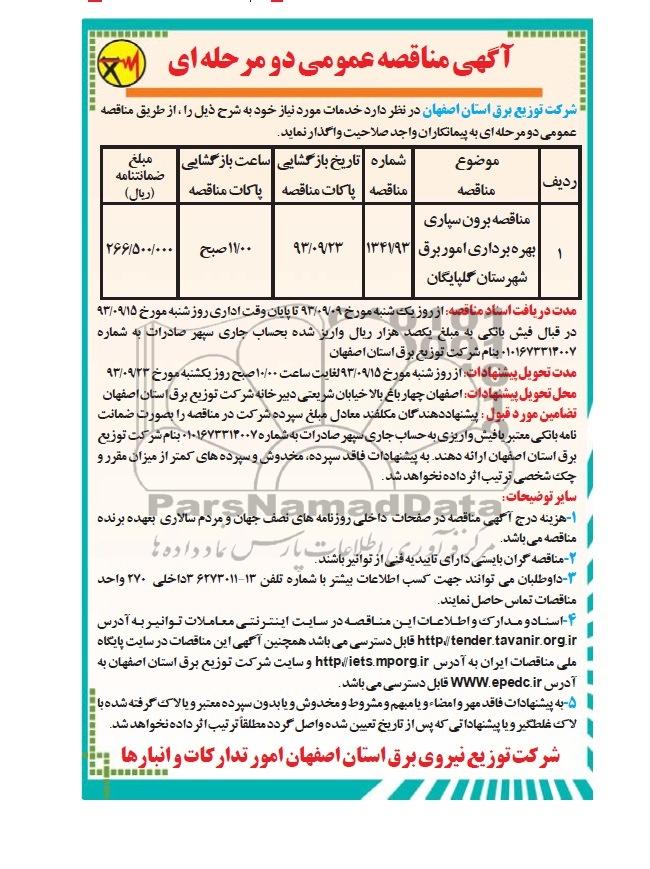 آگهی مناقصه عمومی دو مرحله ای
شرکت توزیع برق استان اصفهان در نظر دارد خدمات مورد نیاز خود به شرح ذیل را ، از طریق مناقصه
عمومی دو مرحله ای به پیمانکاران واجد صلاحیت واگذار نماید.
ردیف
موضوع مناقصه
شماره مناقصه
تاریخ بازگشایی پاکات مناقصه
ساعت بازگشایی پاکات مناقصه
مبلغ ضمانتنامه (ریال)
۱
مناقصه برون سپاری
بهره برداری امور برق
شهرستان گلپایگان
۱۳۴۱/۹۳
۹۳/۰۹/۲۳
۱۱/۰۰ صبح
۲۶۶/۵۰۰/۰۰۰
مدت دریافت اسناد مناقصه: از روز یک شنبه مورخ ۹۳/۰۹/۰۹ تا پایان وقت اداری روز شنبه مورخ ۹۳/۰۹/۱۵
در قبال فیش بانکی به مبلغ یکصد هزار ریال واریز شده بحساب جاری سپهر صادرات به شماره
۰۱۰۱۶۷۳۳۱۴۰۰۷ بنام شرکت توزیع برق استان اصفهان
مدت تحویل پیشنهادات: از روز شنبه مورخ ۹۳/۰۹/۱۵ لغایت ساعت ۱۰/۰۰ صبح روز یکشنبه مورخ ۹۳/۰۹/۲۳
محل تحویل پیشنهادات: اصفهان چهارباغ بالا خیابان شریعتی دبیرخانه شرکت توزیع برق استان اصفهان
تضامین مورد قبول : پیشنهاددهندگان مکلفند معادل مبلغ سپرده شرکت در مناقصه را بصورت ضمانت
نامه بانکی معتبر یا فیش واریزی به حساب جاری سپهر صادرات به شماره ۰۱۰۱۶۷۳۳۱۴۰۰۷ بنام شرکت توزیع
برق استان اصفهان ارائه دهند. به پیشنهادات فاقد سپرده، مخدوش و سپرده های کمتر از میزان مقرر و
چک شخصی ترتیب اثر داده نخواهد شد.
سایر توضیحات:
۱-هزینه درج آگهی مناقصه در صفحات داخلی روزنامه های نصف جهان و مردم سالاری بعهده برنده
مناقصه می باشد.
۲-مناقصه گران بایستی دارای تاییدیه فنی از توانیر باشند.
۳-داوطلبان می توانند جهت کسب اطلاعات بیشتر با شماره تلفن ۱۳-۳۶۲۷۳۰۱۱ داخلی ۲۷۰ واحد
مناقصات تماس حاصل نمایند.
۴-اسناد و مدارک و اطلاعات این مناقصه در سایت اینترنتی معاملات توانیر به آدرس
http://tender.tavanir.org.ir قابل دسترسی می باشد همچنین آگهی این مناقصات در سایت پایگاه
ملی مناقصات ایران به آدرس http://iets.mporg.ir و سایت شرکت توزیع برق استان اصفهان به
آدرس WWW.epedc.ir قابل دسترسی می باشد.
۵-به پیشنهادات فاقد مهر و امضاء و یا مبهم و مشروط و مخدوش و یا بدون سپرده معتبر و یا لاک گرفته شده با
لاک غلطگیر و یا پیشنهاداتی که پس از تاریخ تعیین شده واصل گردد مطلقاً ترتیب اثر داده نخواهد شد.
شرکت توزیع نیروی برق استان اصفهان امور تدارکات و انبارها
ParsNamadData
مرکز فرآوری اطلاعات پارس نماد داده ها